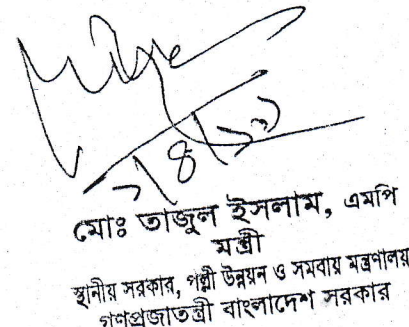 মোঃ তাজুল ইসলাম, এমপি
মন্ত্রী
স্থানীয় সরকার, পল্লী উন্নয়ন ও সমবায় মন্ত্রণালয়
গণপ্রজাতন্ত্রী বাংলাদেশ সরকার